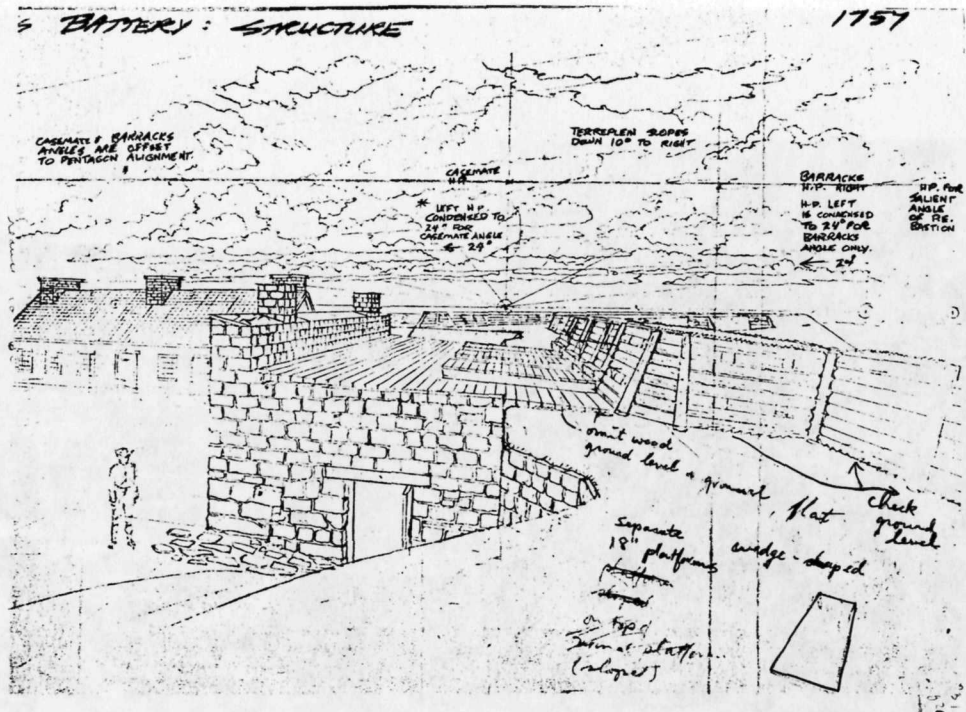 S BATTERY: STRUCTURE
1757
CASEMATE & BARRACKS
ANGLES ARE OFFSET
TO PENTAGON ALIGNMENT.
TERREPLEN SLOPES
DOWN 10° TO RIGHT
CASEMATE
H.P.
* LEFT H.P.
CONDENSED TO
24" FOR
CASEMATE ANGLE
← 24"
BARRACKS
H.P. RIGHT
H.P. LEFT
IS CONDENSED
TO 24" FOR
BARRACKS
ANGLE ONLY.
← 24"
H.P. FOR
SALIENT
ANGLE
OF RE.
BASTION
omit wood
ground level
ground
flat
check
ground
level
separate
18" platforms
wedge-shaped
platform
shaped
on top of
(sloped)